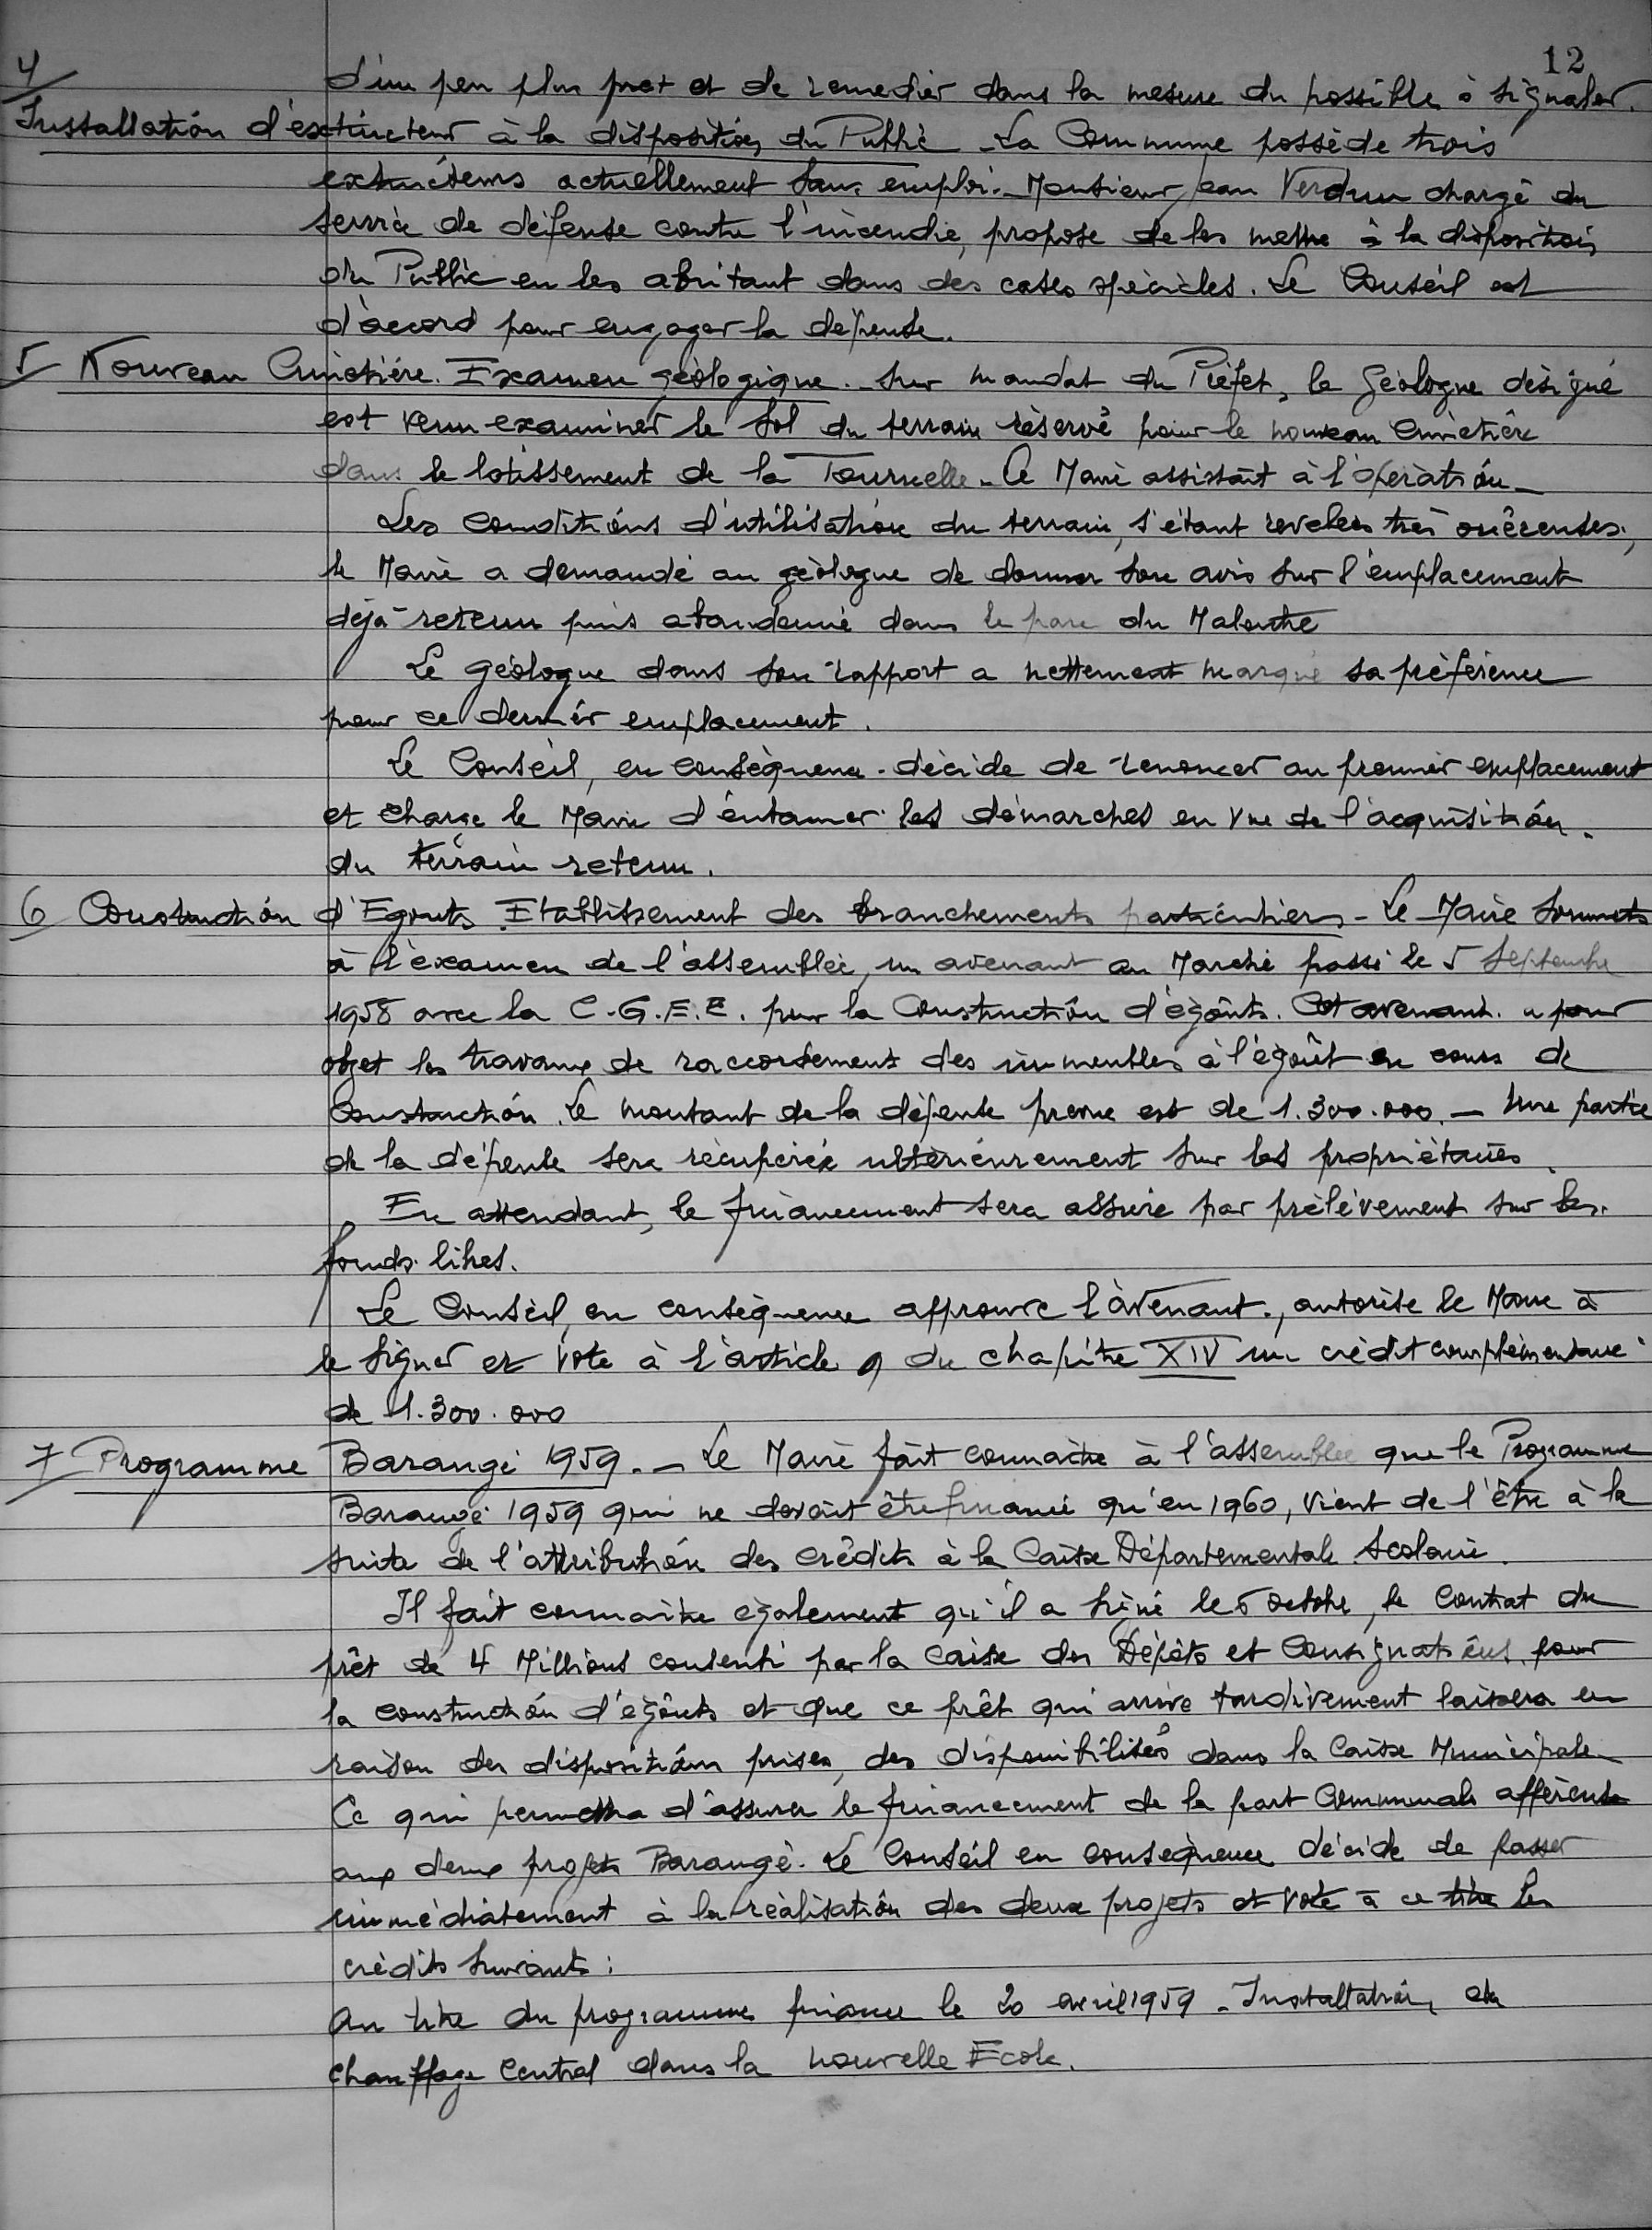 12
d'un peu plus pret et de remedier dans la mesure du possible à signaler.
4/ Installation d'extincteur à la disposition du Public - La Commune possède trois
extincteurs actuellement sans emploi. - Monsieur Jean Verdun chargé du
service de défense contre l'incendie, propose de les mettre à la disposition
du Public en les abritant dans des cases spéciales. Le Conseil est
d'accord pour engager la dépense.
5 Nouveau Cimetière. Examen géologique. Sur mandat du Préfet, le Géologue désigné
est venu examiner le sol du terrain réservé pour le nouveau cimetière
dans le lotissement de la Tournelle - Le Maire assistait à l'opération -
Les conditions d'utilisation du terrain, s'étant revelées très onéreuses,
le Maire a demandé au géologue de donner son avis sur l'emplacement
déjà retenu puis abandonné dans le parc du
Le géologue dans son rapport a nettement marqué sa préférence
pour ce dernier emplacement.
Le Conseil, en conséquence décide de renoncer au premier emplacement
et charge le Maire d'entamer les démarches en vue de l'acquisition
du terrain retenu.
6 Construction d'Egouts Etablissement des branchements particuliers - Le Maire soumets
à l'examen de l'assemblée, un avenant au Marché passé le 5 Septembre
1958 avec la C.G.E.E. pour la Construction d'égôuts. Cet avenant a pour
objet les travaux de raccordement des immeubles à l'égoût en cours de
Construction. Le montant de la dépense prevue est de 1.300.000. - Une partie
de la dépense sera récupérée ultérieurement sur les propriétaires.
En attendant, le financement sera assuré par prélèvement sur les
fonds libres.
Le Conseil, en conséquence approuve l'avenant, autorise le Maire à
le signer et vote à l'article 9 du chapitre XIV un crédit complémentaire
de 1.300.000
7 Programme Barangé 1959. - Le Maire fait connaitre à l'assemblée que le Programme
Barangé 1959 qui ne devait être financé qu'en 1960, vient de l'être à la
suite de l'attribution des crédits à la Caisse Départementale Scolaire.
Il fait connaitre également qu'il a signé le 5 octobre, le Contrat du
prêt de 4 Millions consenti par la Caisse des Dépôts et Consignations pour
la construction d'égôuts et que ce prêt qui arrive tardivement laissera en
raison des dispositions prises, des disponibilités dans la Caisse Municipale
Ce qui permettra d'assurer le financement de la part Communale afférente
aux deux projets Barangé. Le Conseil en conséquence décide de passer
immédiatement à la réalisation des deux projets et vote à ce titre les
crédits suivants :
Au titre du programme financé le 20 avril 1959 - Installation du
Chauffage Central dans la nouvelle Ecole.